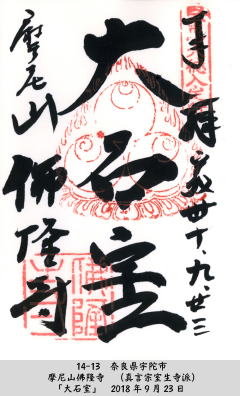 奉拝
平成卅十、九、廿三
大石室
摩尼山
佛隆寺
佛隆寺
14-13 奈良県宇陀市
摩尼山佛隆寺 (真言宗室生寺派)
「大石室」 2018年9月23日